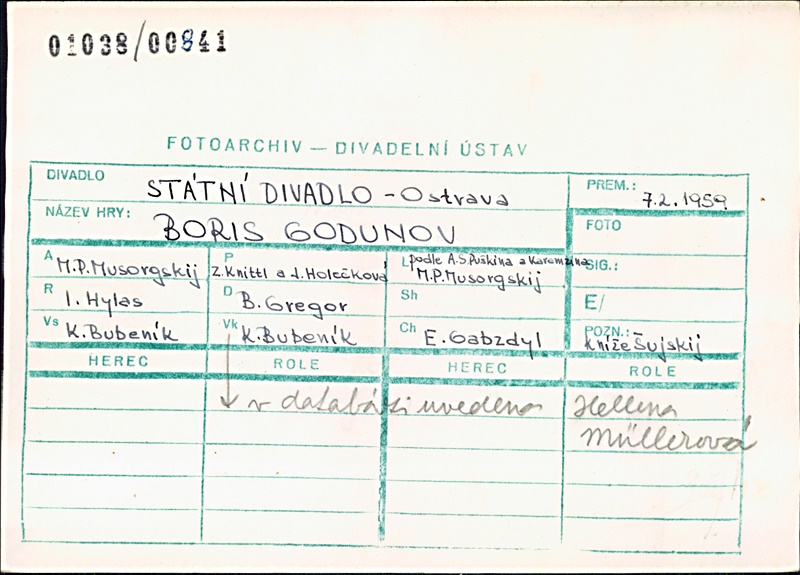 01038/00841
FOTOARCHIV — DIVADELNÍ ÚSTAV
DIVADLO STÁTNÍ DIVADLO - Ostrava PREM.: 7.2.1959
NÁZEV HRY: BORIS GODUNOV FOTO
A M.P. Musorgskij P Z. Knittl a J. Holečková L podle A.S. Puškina a Karamzina M.P. Musorgskij SIG.:
R I. Hylas D B. Gregor Sh E/
Vs K. Bubeník Vk K. Bubeník Ch E. Gabzdyl POZN.: kníže Šujskij
HEREC ROLE HEREC ROLE
v databázi uvedena Hellena
Müllerová